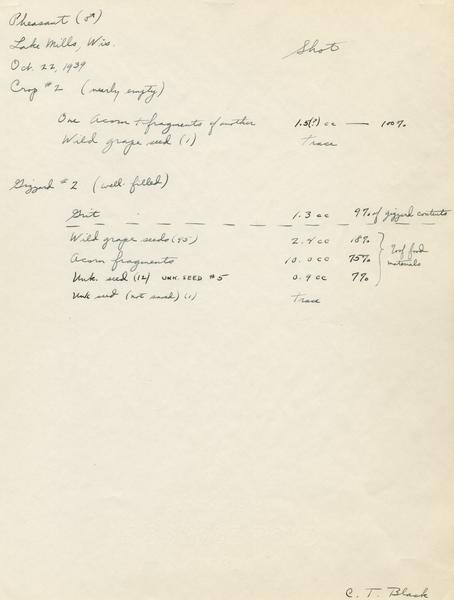 Pheasant (♂)
Lake Mills, Wis.
Shot
Oct. 22, 1939
Crop #2 (nearly empty)
One Acorn + fragments of another 1.5(?) cc — 100%
Wild grape seed (1) trace
Gizzard #2 (well-filled)
Grit 1.3 cc 9% of gizzard contents
Wild grape seeds (75) 2.4 cc 18%
Acorn fragments 10.0 cc 75%
% of food materials
Unk. seed (12) UNK. SEED #5 0.9 cc 7%
Unk seed (not saved) (1) trace
C. T. Black